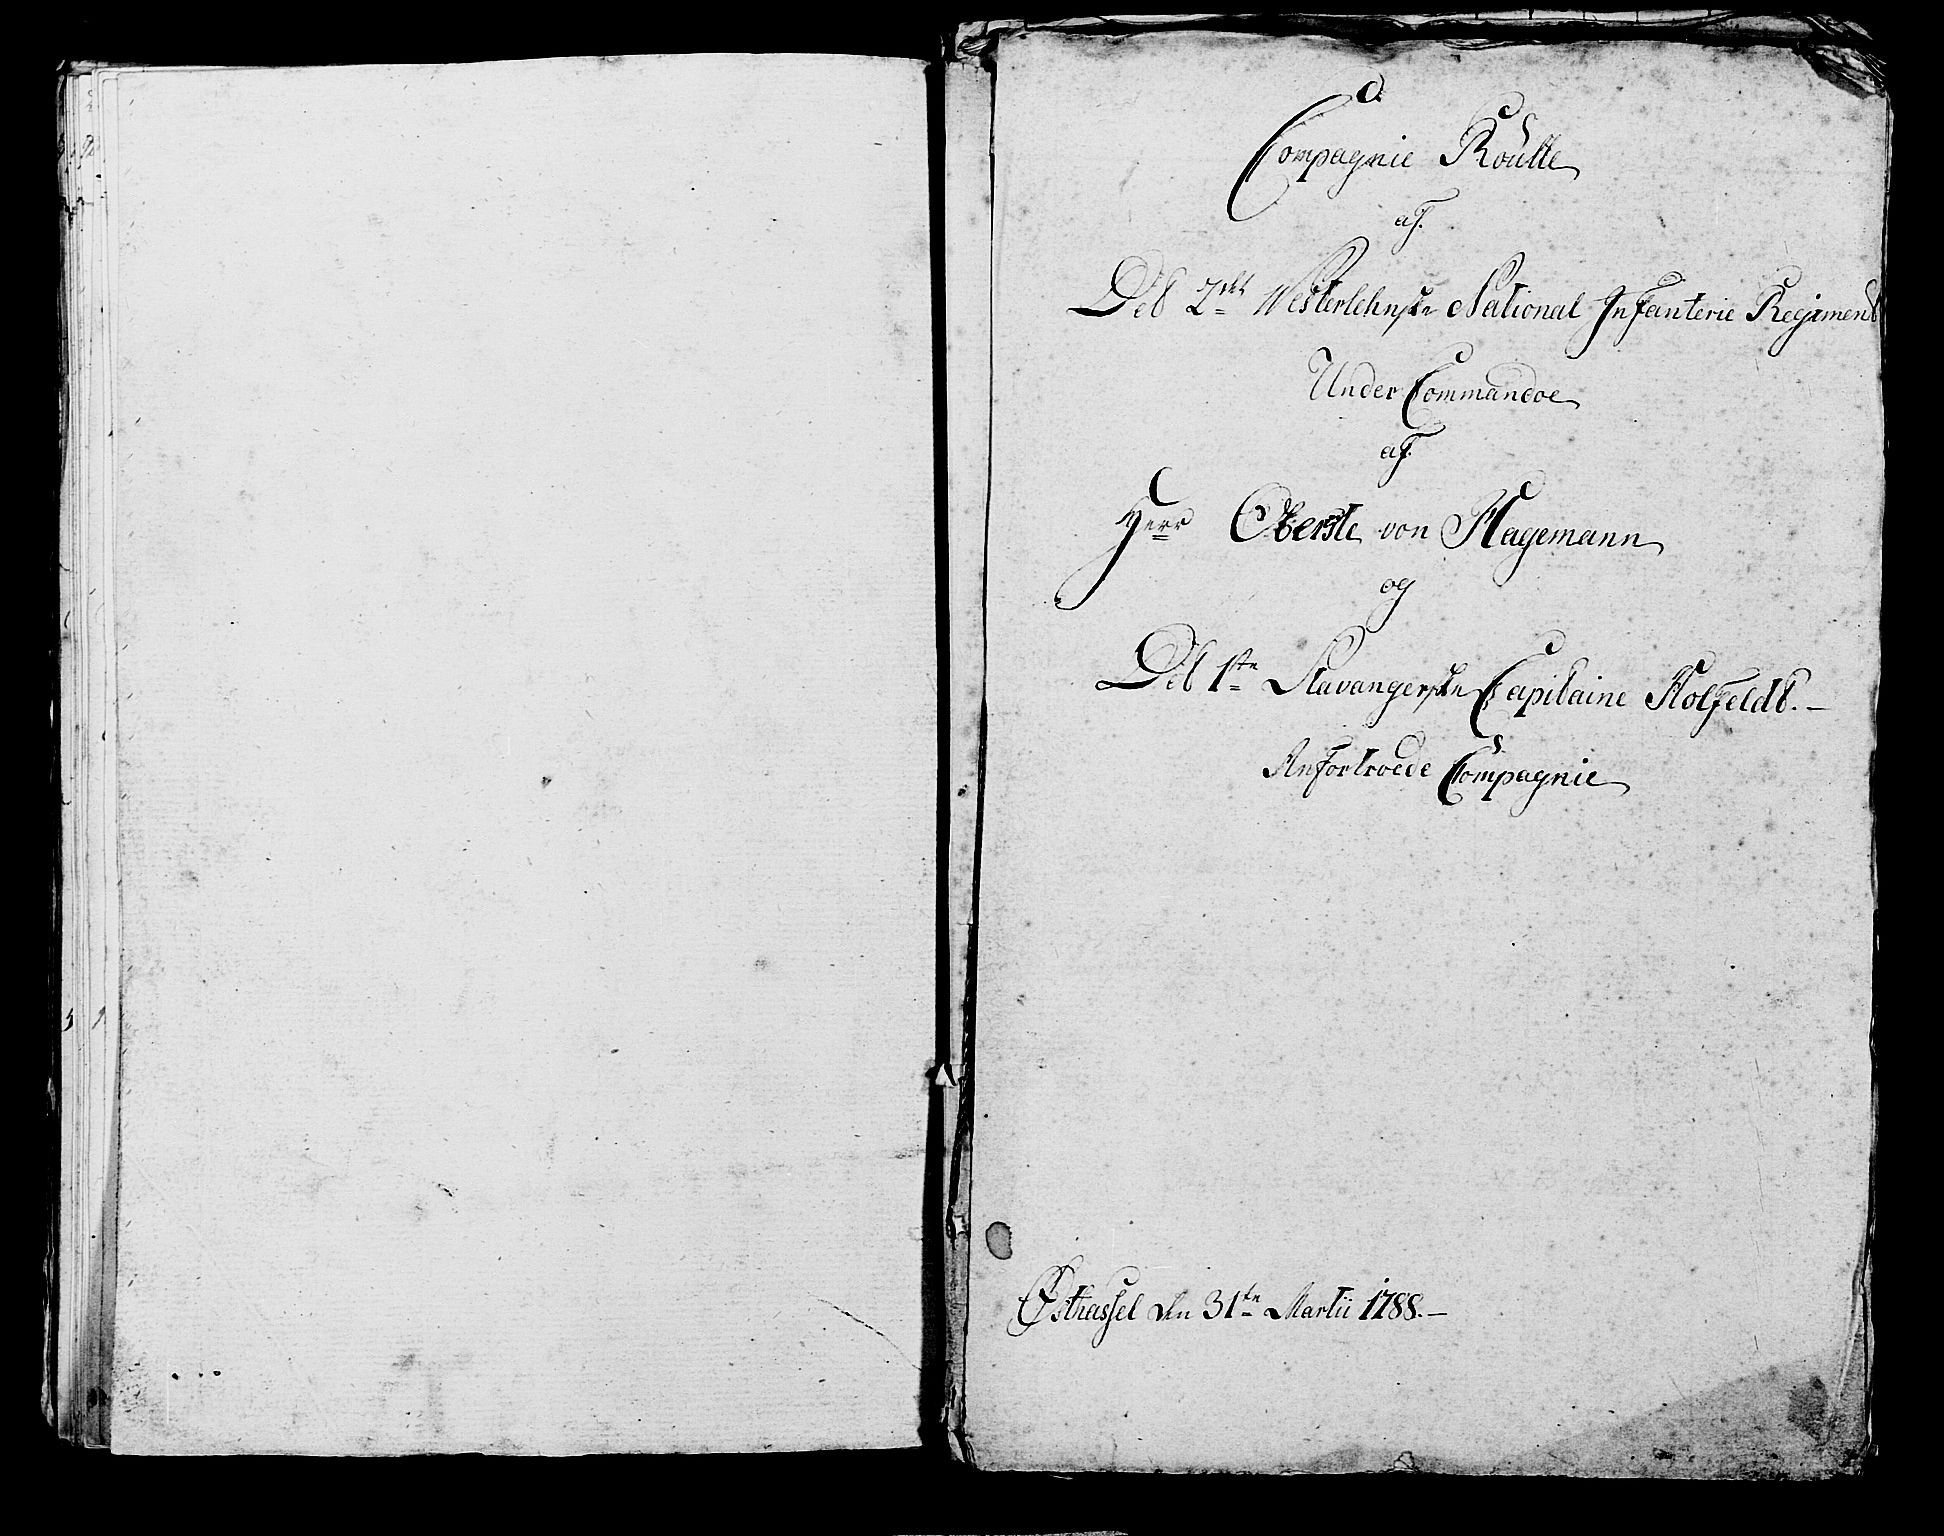 d.
Compagnie Roulle
af
Det 2det Westerlehnske National Infanterie Regiment
Under Commandoe
af
Herr Oberste von Hagemann
og
Det 1ste Stavangerske Capitaine Holfeldt.
Anfortroede Compagnie
Østhassel den 31te Martii 1788.